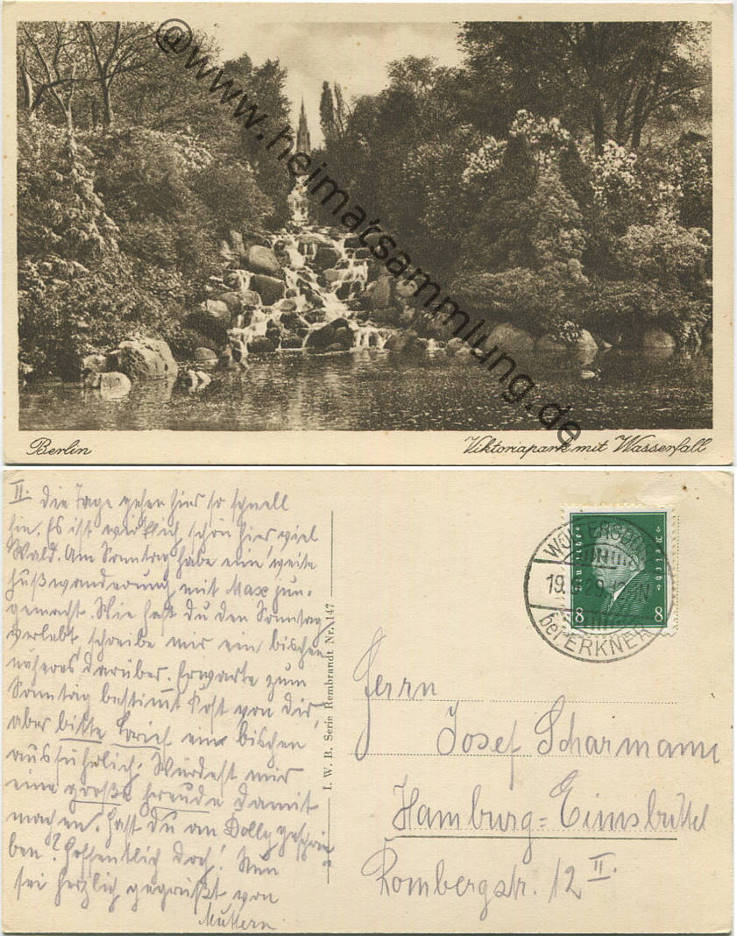 @www.heimatsammlung.de
Berlin
Viktoriapark mit Wasserfall
II. Die Tage gehen hier so schnell
hin. Es ist wirklich schön hier, viel
Wald. Am Sonntag habe eine weite
Fußwanderung mit Max jun.
gemacht. Wie hast du den Sonntag
verlebt, schreibe mir ein bischen
näheres darüber. Erwarte zum
Sonntag bestimmt Post von dir,
aber bitte Brief ein bischen
ausführlich. Würdest mir
eine große Freude damit
machen. Hast du an Dolly geschrie-
ben? Hoffentlich doch! Nun
sei herzlich gegrüßt von
Muttern
I. W. B. Serie Rembrandt Nr. 147
WOLTERSDORF
19. 29.
bei ERKNER
Deutsches Reich
8 8
Herrn
Josef Scharmann
Hamburg=Eimsbüttel
Rombergstr. 12 II.